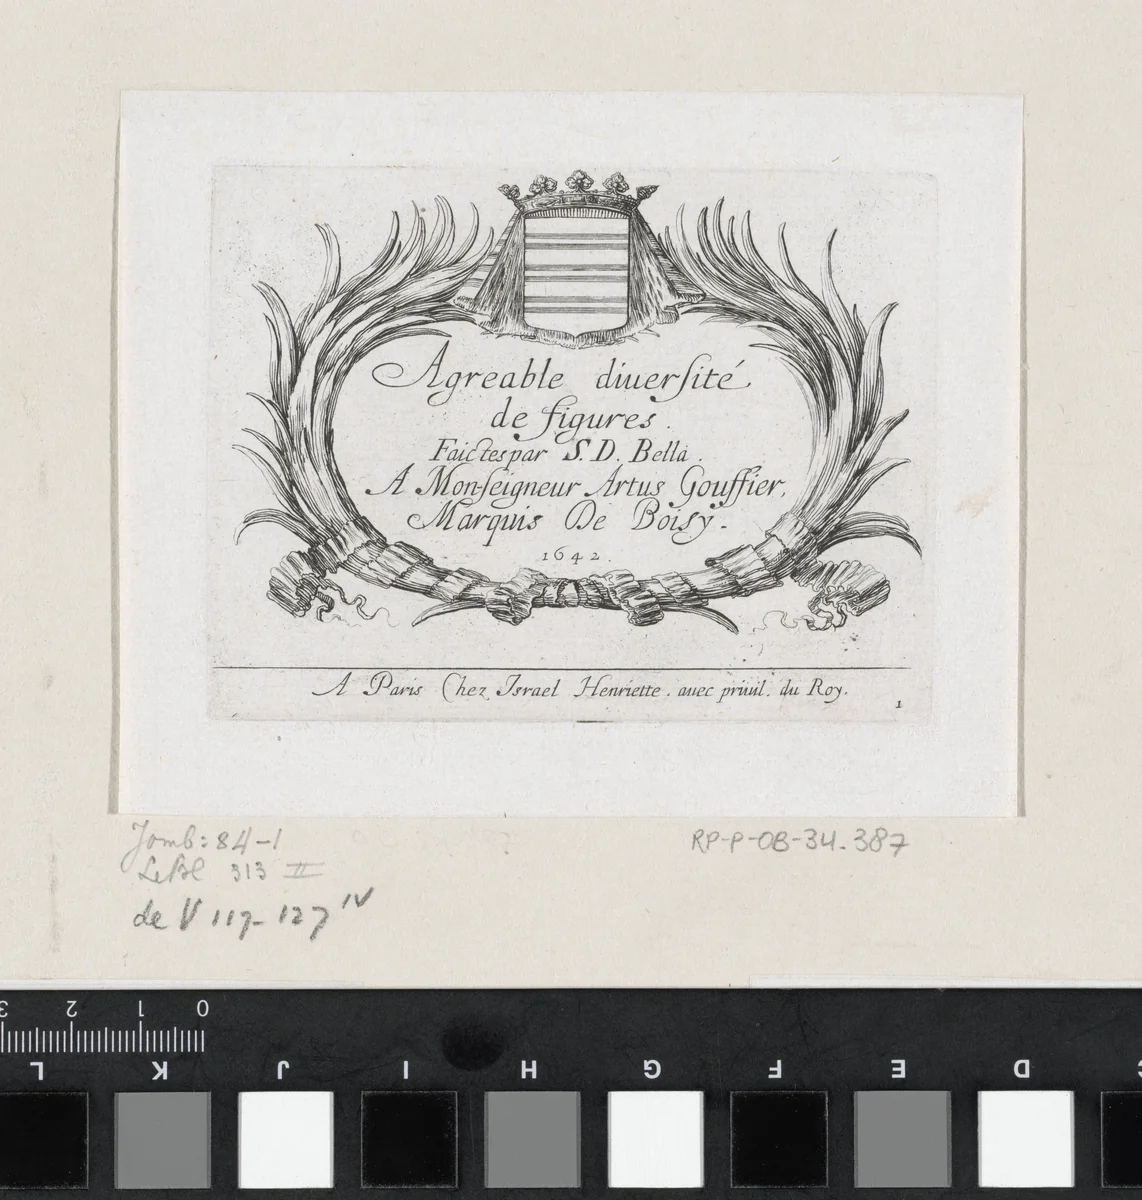 Agreable diuersité
de figures.
Faictes par S. D. Bella.
A Monseigneur Artus Gouffier,
Marquis De Boisy.
1642.
A Paris Chez Israel Henriette. auec priuil. du Roy.
1
Jomb: 84-1
LeBl 313 II
de V 117-127 IV
RP-P-OB-34.387
3 2 1 0
L K J I H G F E D C